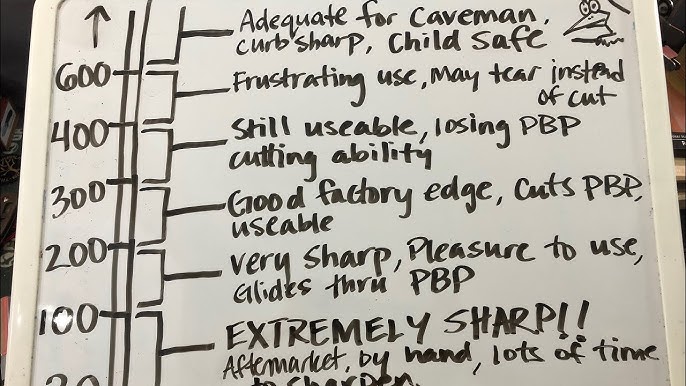 Adequate for Caveman,
curb sharp, Child Safe
600
Frustrating use, May tear instead
of cut
400
Still useable, losing PBP
cutting ability
300
Good factory edge, Cuts PBP,
useable
200
Very Sharp, Pleasure to use,
Glides thru PBP
100
EXTREMELY SHARP!!
Aftermarket, by hand, lots of time
to sharpen